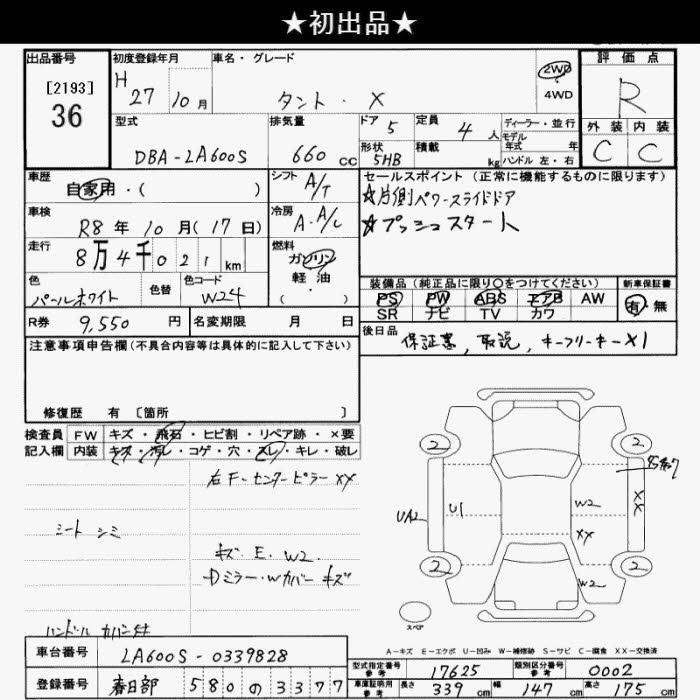 ★初出品★
出品番号 初度登録年月 車名・グレード 評価点
[2193]
36
H 27 10月 タント・X 2WD 4WD R
外装 内装
C C
型式 排気量 ドア 5 定員 4人 ディーラー・並行
モデル年式 年
DBA-LA600S 660cc 形状 5HB 積載 kg ハンドル 左・右
車歴 自家用・( ) シフト A/T
セールスポイント(正常に機能するものに限ります)
★片側パワースライドドア
★プッシュスタート
車検 R8年10月(17日) 冷房 A・A/C
走行 8万4千021km 燃料 ガソリン 軽油 ・( )
色 パールホワイト 色替 色コード W24
装備品(純正品に限り○をつけてください) 新車保証書
PS PW ABS エアB AW 有・無
SR ナビ TV カワ
R券 9,550円 名変期限 月 日
後日品 保証書、取説、キーフリーキー×1
注意事項申告欄(不具合内容等は具体的に記入して下さい)
修復歴 有 [箇所 ]
検査員 FW キズ・飛石・ヒビ割・リペア跡・×要
記入欄 内装 キズ・汚レ・コゲ・穴・スレ・キレ・破レ
右F-センターピラーXX
シートシミ
キズ、E、W2、
Dミラー・Wカバーキズ
2 2
UA2 U1 W2 X X
XX
2 2
W2
スペア
A-キズ E-エクボ U-凹み W-補修跡 S-サビ C-腐食 XX-交換済
車台番号 LA600S-0339828
型式指定番号 参考 17625 類別区分番号 参考 0002
登録番号 春日部 580 の 3377
車庫証明用 参考 長さ 339cm 幅 147cm 高さ 175cm